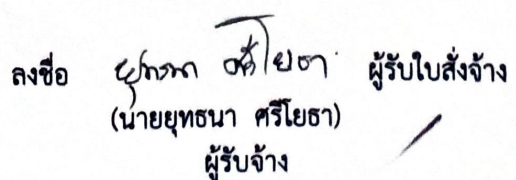 ลงชื่อ ยุทธนา ศรีโยธา ผู้รับใบสั่งจ้าง
(นายยุทธนา ศรีโยธา)
ผู้รับจ้าง